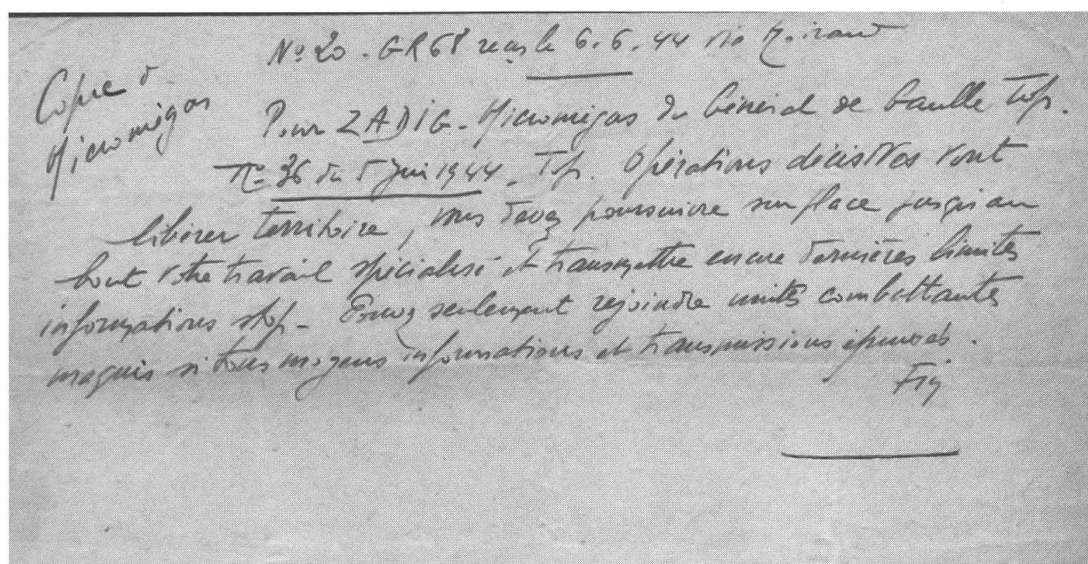 Nº 20 - GR 68 reçu le 6.6.44 via
Copie à
Micromégas
Pour ZADIG - Micromégas du Général de Gaulle stop.
Nº 36 du 5 Juin 1944 - stop. Opérations décisives vont
libérer territoire, vous devez poursuivre sur place jusqu'au
bout votre travail spécialisé et transmettre encore dernières limites
informations stop - Devez seulement rejoindre unités combattantes
maquis si tous moyens informations et transmissions épuisés.
Fin